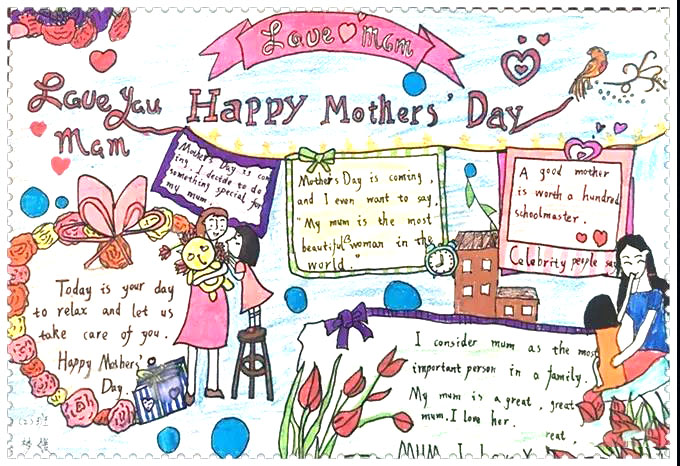 Love mam
Love You
Mam
Happy Mothers' Day
Mothers Day is com
ing, I decide to do
something special for
my mum.
Mother's Day is coming,
and I even want to say,
"My mum is the most
beautiful woman in the
world."
A good mother
is worth a hundred
schoolmaster.
Celebrity people say
Today is your day
to relax and let us
take care of you.
Happy Mothers'
Day.
I consider mum as the most
important person in a family.
My mum is a great, great
mum. I love her.
reat,
(2)班